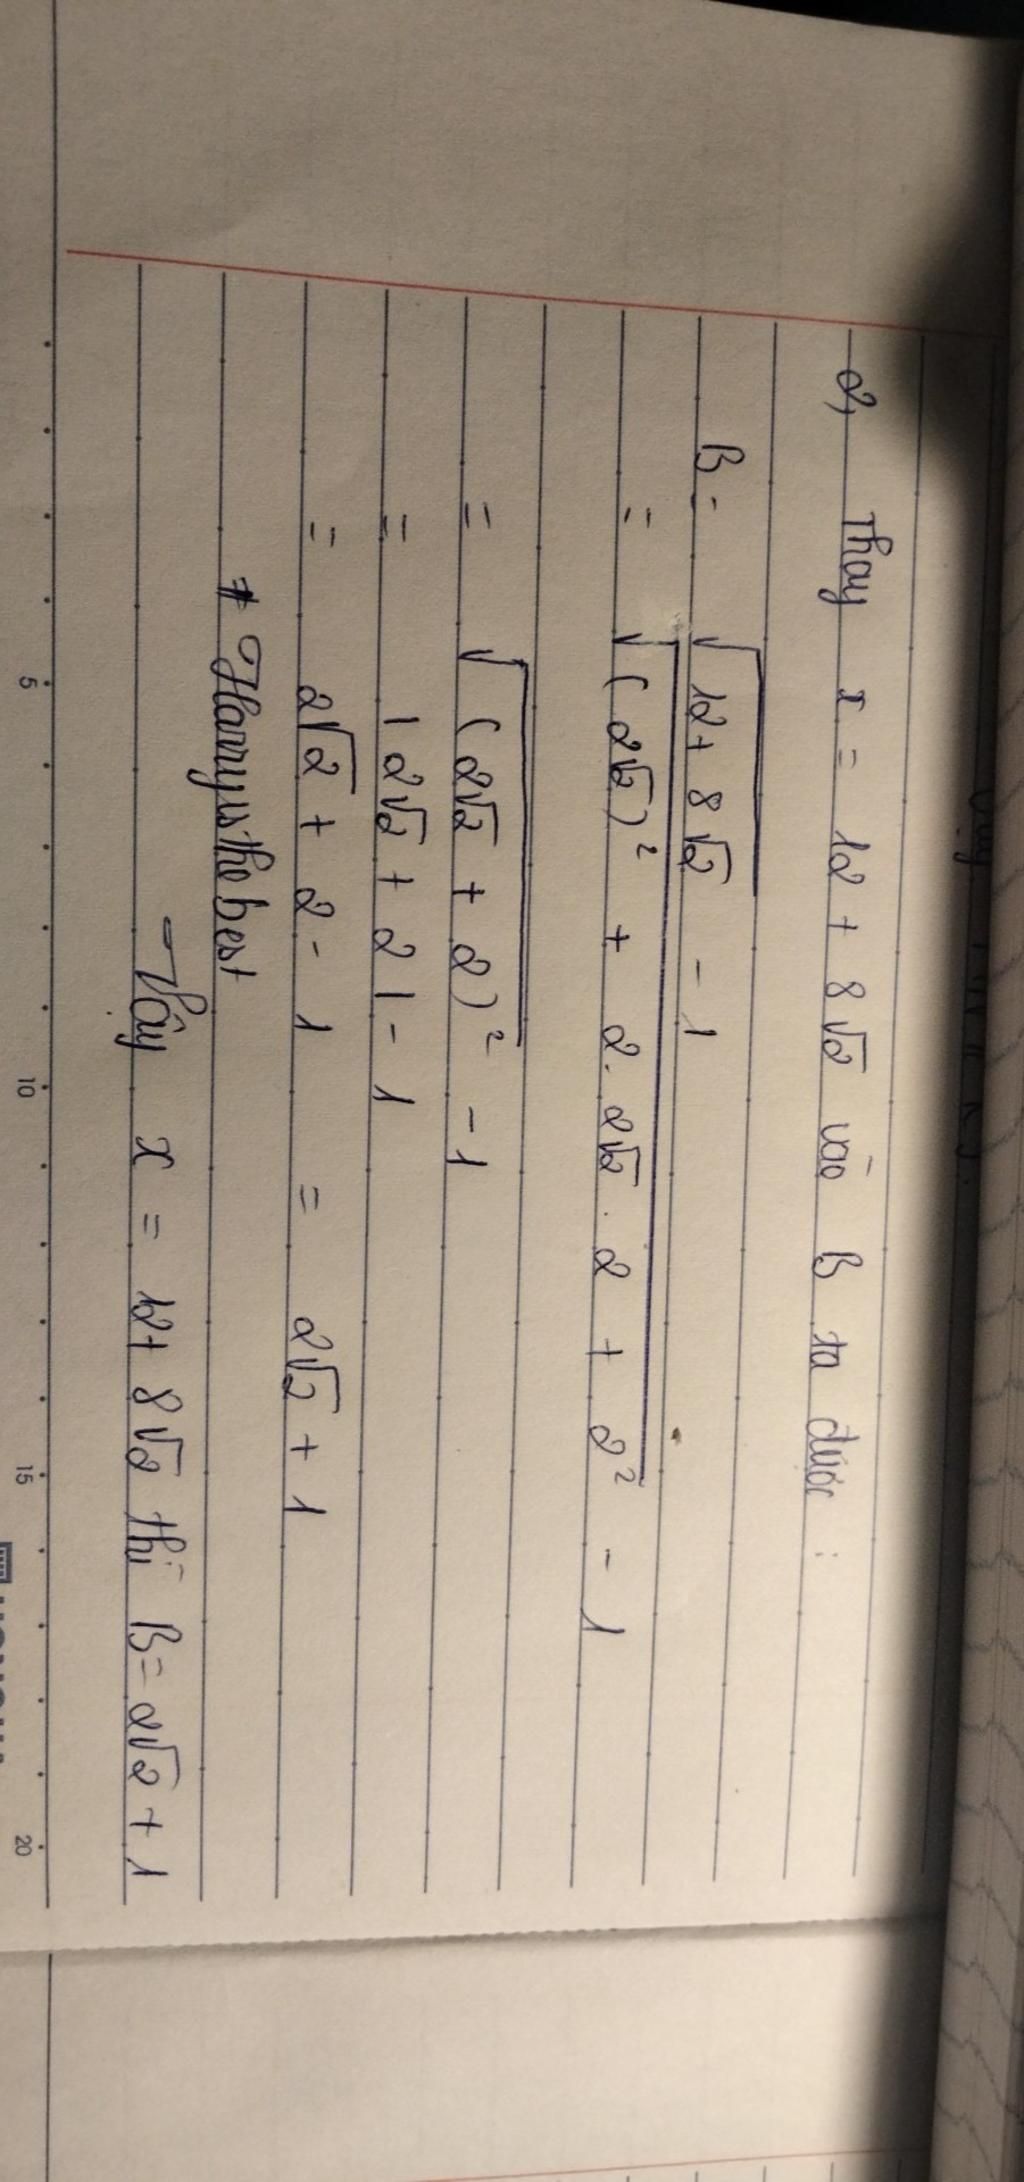 2, Thay x = 12 + 8√2 vào B ta được :
B = √(12 + 8√2) - 1
= √((2√2)² + 2. 2√2 . 2 + 2²) - 1
= √((2√2 + 2)²) - 1
= | 2√2 + 2 | - 1
= 2√2 + 2 - 1 = 2√2 + 1
# Harry is the best
Vậy x = 12 + 8√2 thì B = 2√2 + 1
5 10 15 20